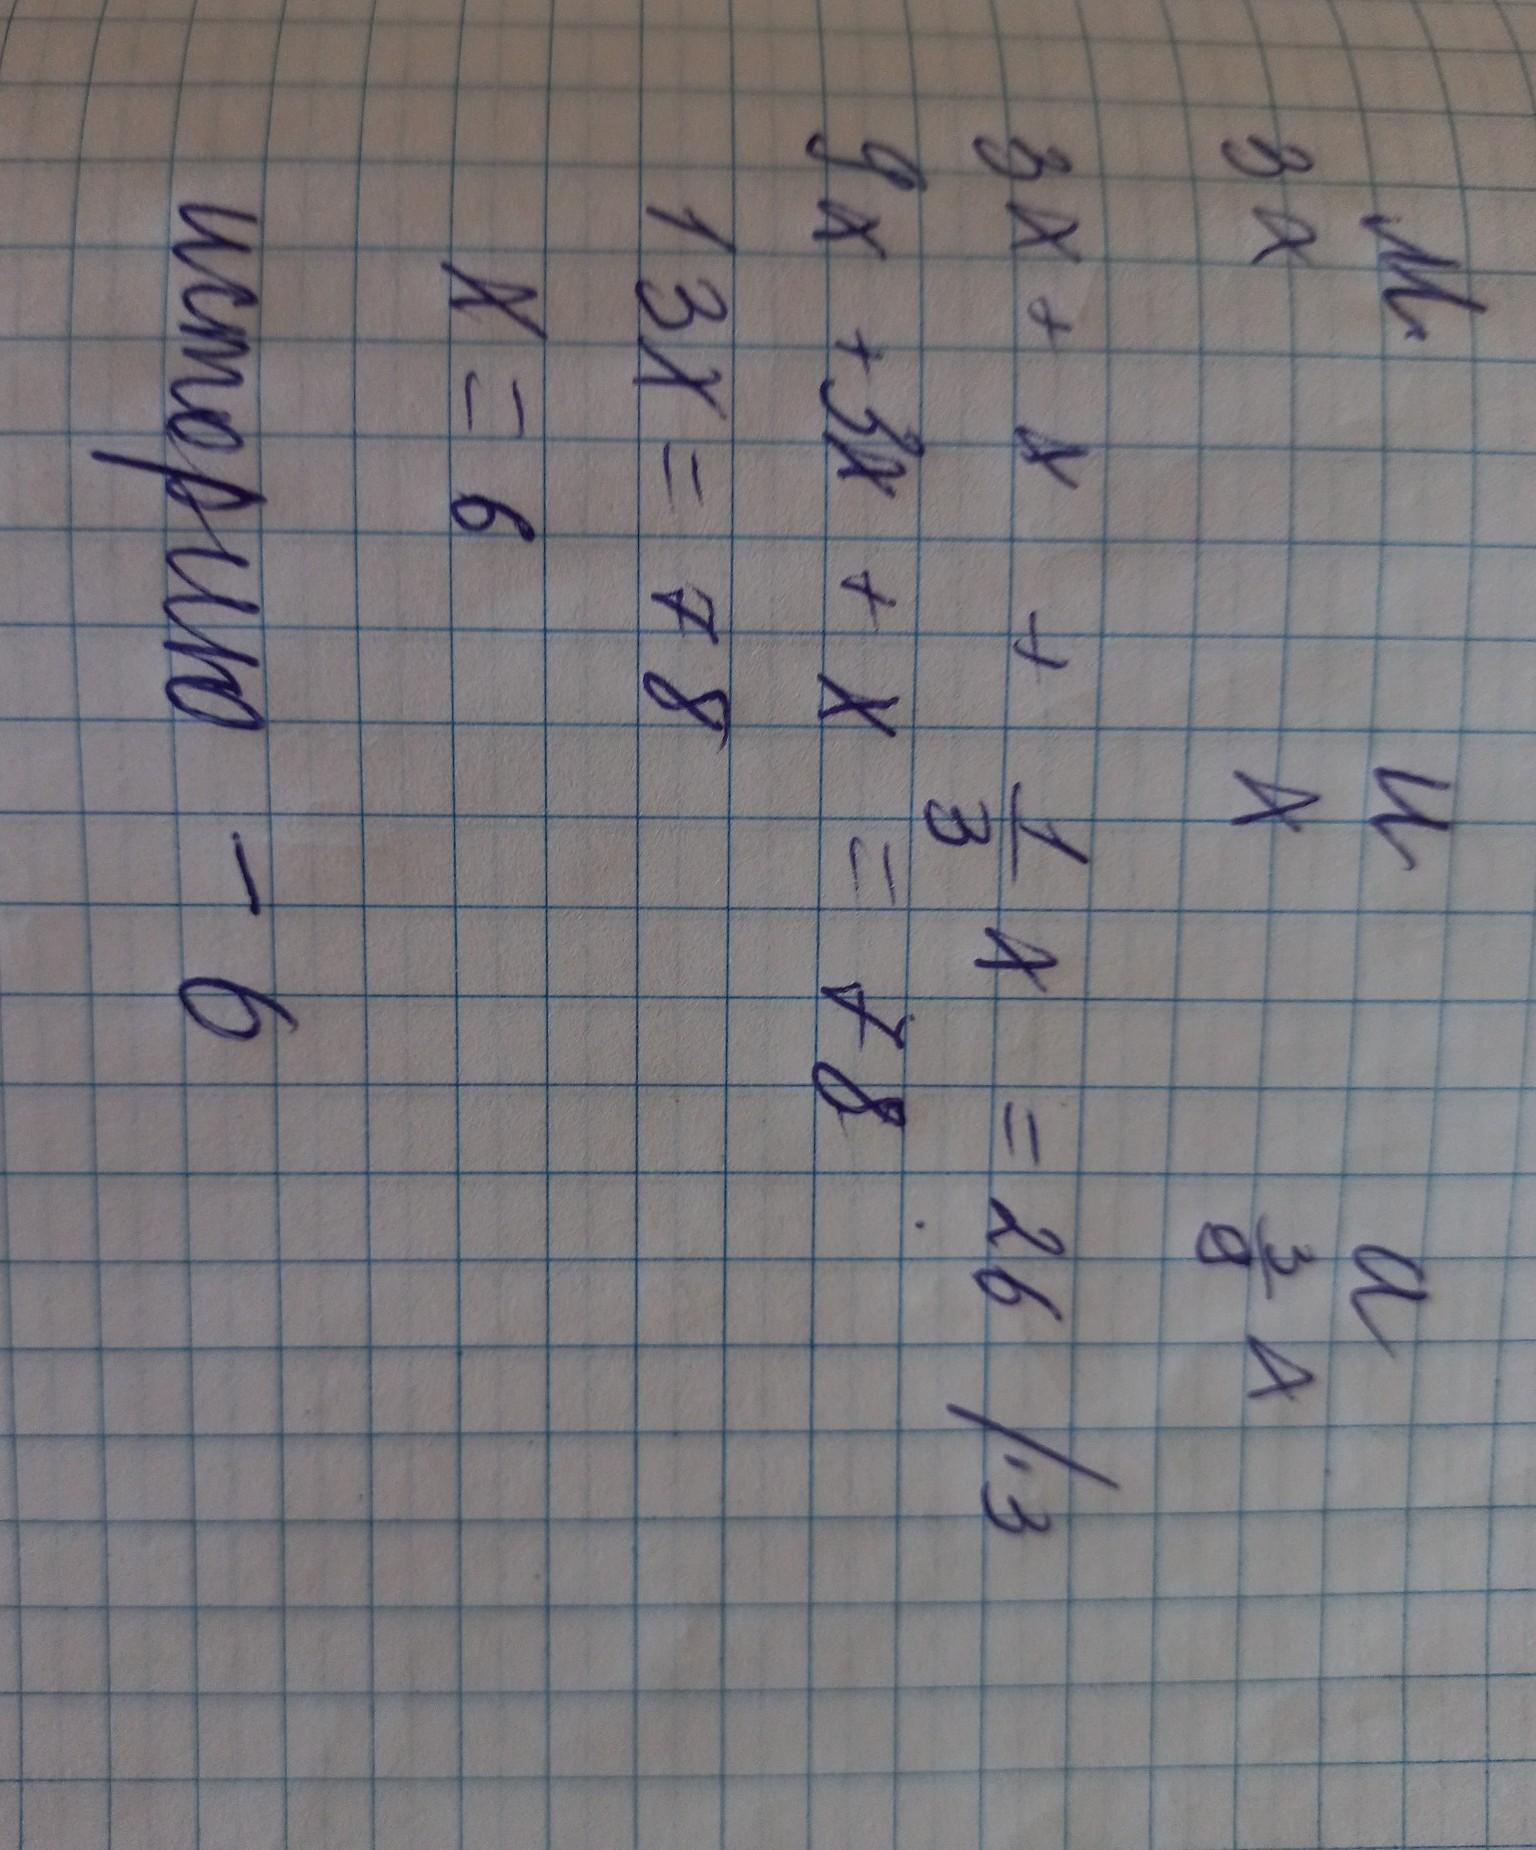 М И А
3x x 3/9 x
3x + x + 1/3 x = 26 /·3
9x + 3x + x = 78
13x = 78
x = 6
историю - 6